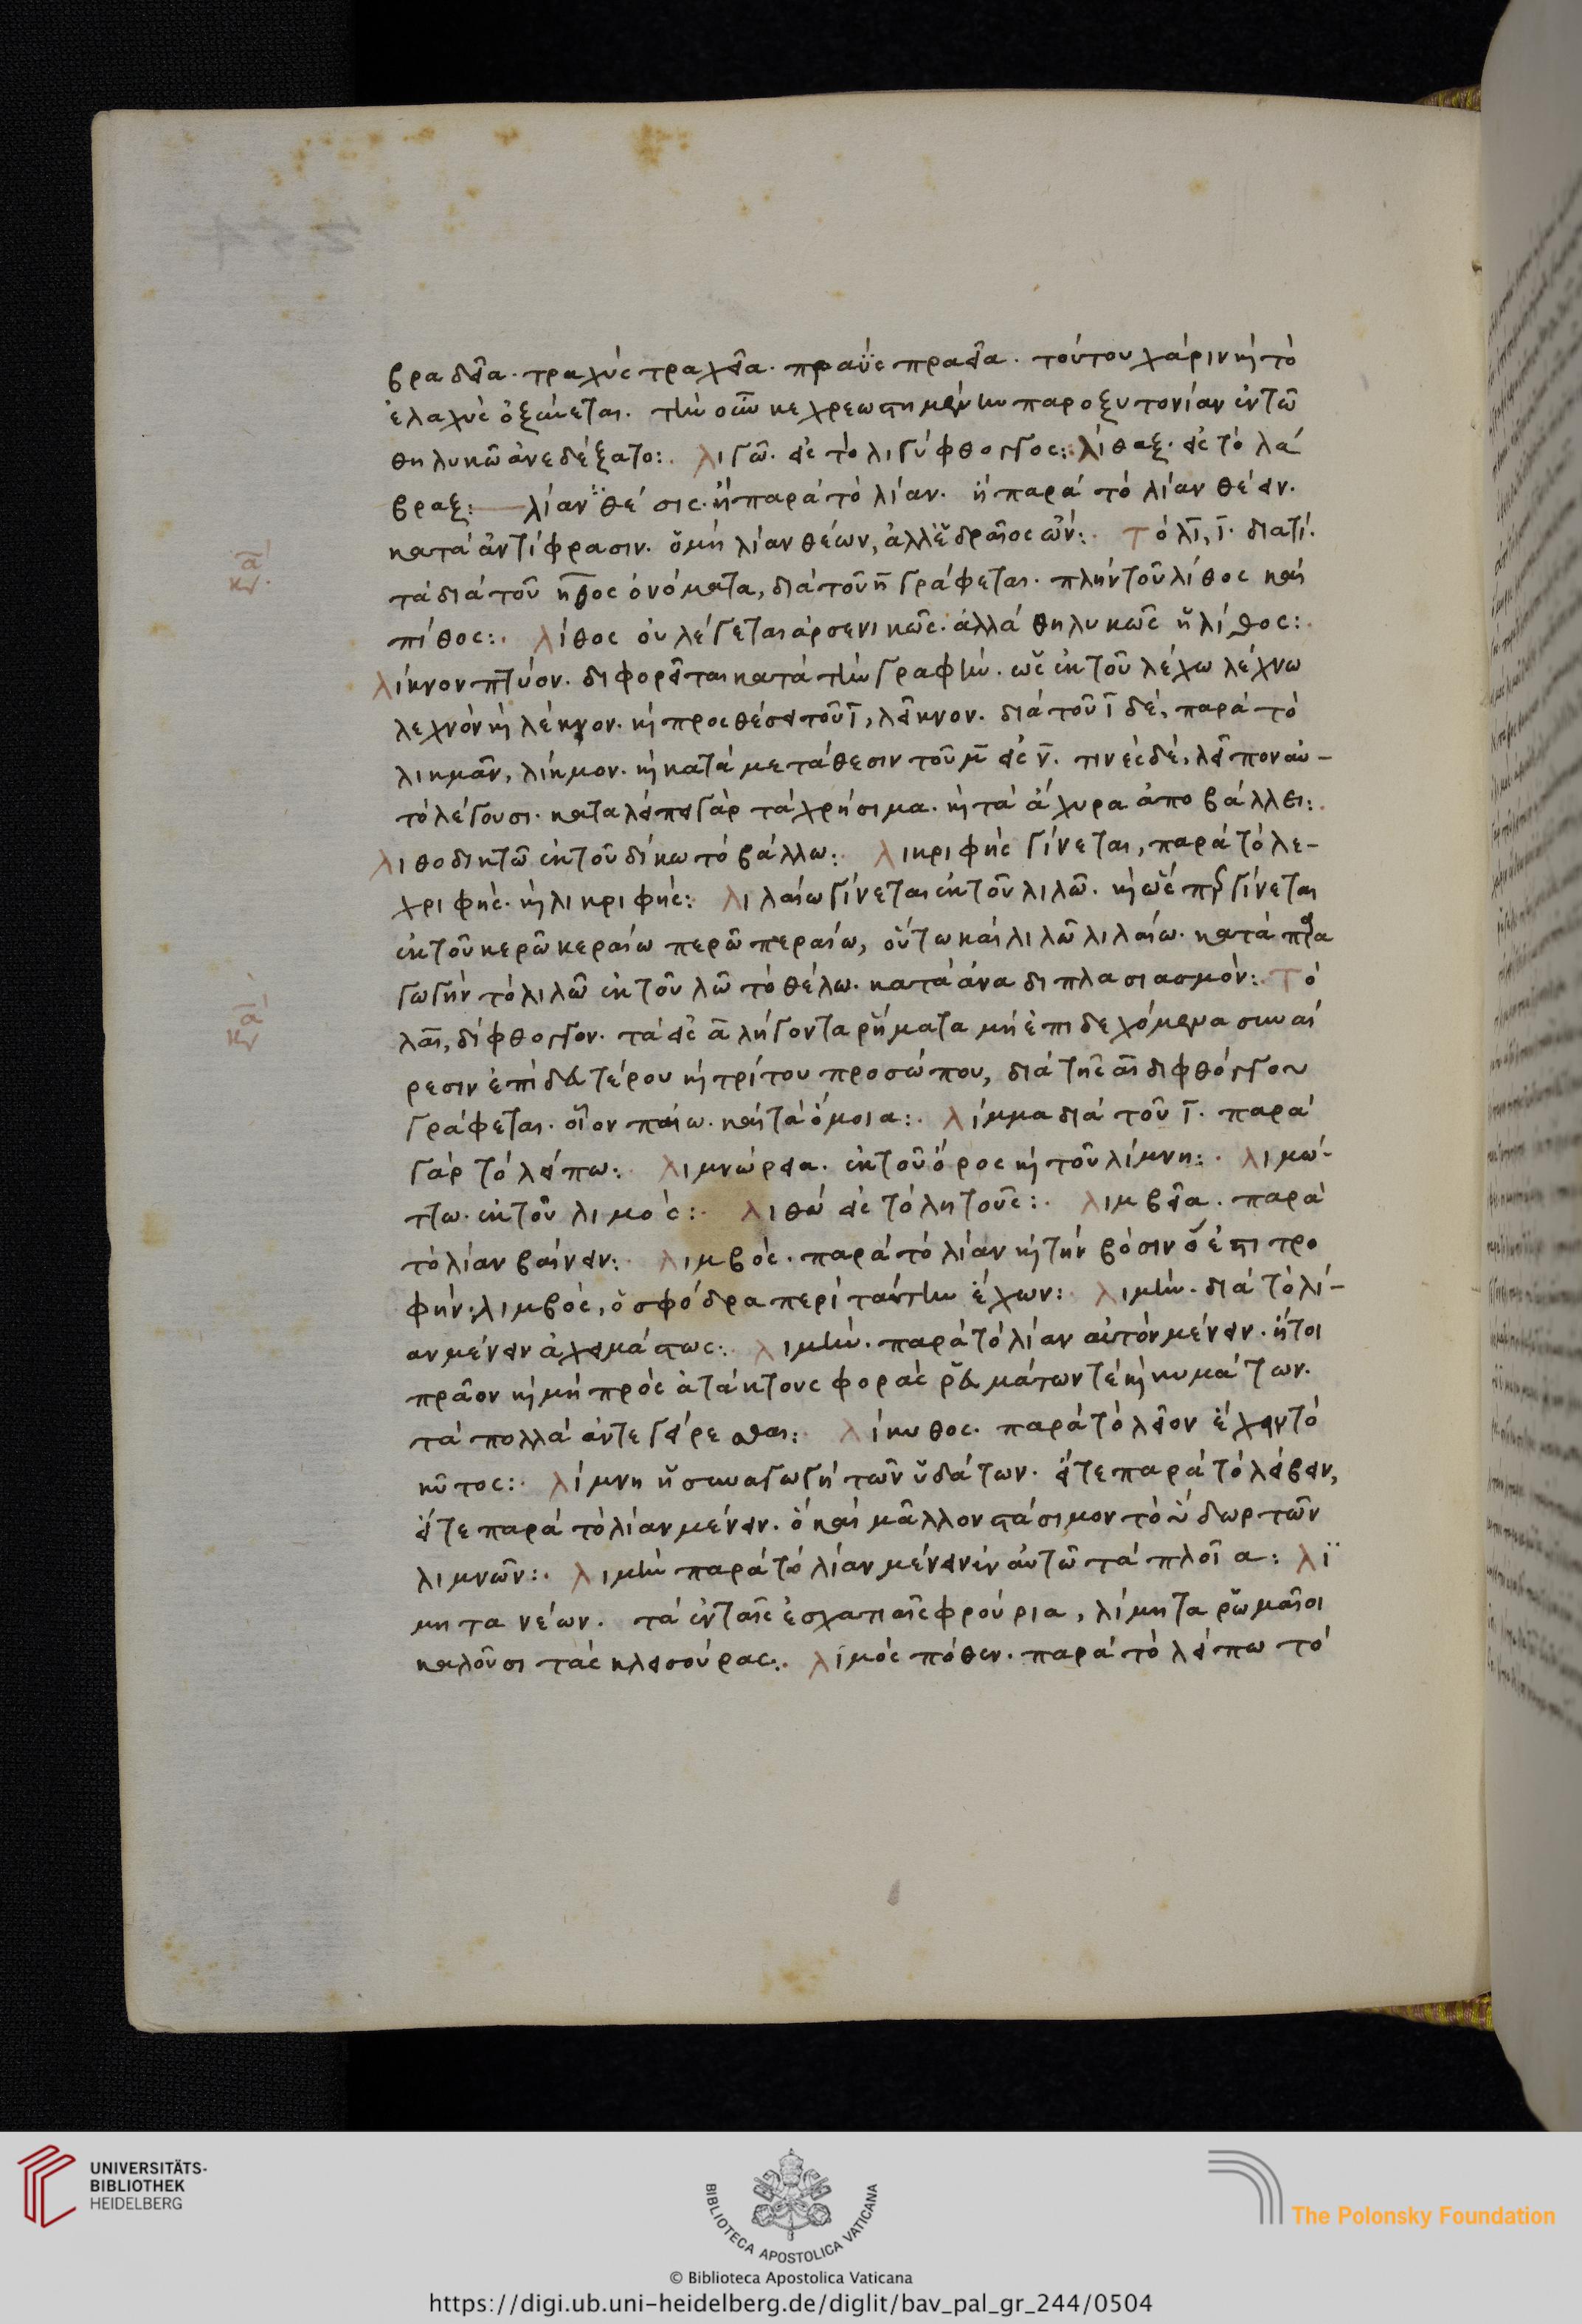 βραδεῖα. τραχὺς τραχεῖα. πραῢς πραεῖα. τούτου χάριν κὴ τὸ
ἐλαχὺς ὀξύνεται. τὴν οὖν κεχρεωστημένην παροξυτονίαν ἐν τῶ
θηλυκῶ ἀνεδέξατο:. λιγῶ. εἰς τὸ λιγύφθογγος:. λίθαξ. εἰς τὸ λά
βραξ: λίαν θέσις. ἢ παρὰ τὸ λίαν. ἢ παρὰ τὸ λίαν θέειν.
κατὰ ἀντίφρασιν. ὁ μὴ λίαν θέων, ἀλλ' ἑδραῖος ὤν:. τὸ λῑ, ῑ. διατί.
τὰ διὰ τοῦ ηθος ὀνόματα, διὰ τοῦ η̄ γράφεται. πλὴν τοῦ λίθος καὶ
πίθος:. λίθος οὐ λέγεται ἀρσενικῶς. ἀλλὰ θηλυκῶς ἡ λίθος:.
λίκνον πτύον. διφορεῖται κατὰ τὴν γραφήν. ὡς ἐκ τοῦ λέχω λέχνω
λεχνὸν κὴ λέκνον. κὴ προσθέσει τοῦ ῑ, λεῖκνον. διὰ τοῦ ῑ δὲ, παρὰ τὸ
λικμᾶν, λίκμον. κὴ κατὰ μετάθεσιν τοῦ μ̄ εἰς ν̄. τινὲς δὲ, λεῖπον αὐ-
τὸ λέγουσι. καταλείπει γὰρ τὰ χρήσιμα. κὴ τὰ ἄχυρα ἀποβάλλει:.
λιθοδικτῶ ἐκ τοῦ δίκω τὸ βάλλω:. λικριφὴς γίνεται, παρὰ τὸ λε-
χριφής. κὴ λικριφής: λιλαίω γίνεται ἐκ τοῦ λιλῶ. κὴ ὥσπερ γίνεται
ἐκ τοῦ κερῶ κεραίω περῶ περαίω, οὕτω καὶ λιλῶ λιλαίω. κατὰ παρα
γωγὴν τὸ λιλῶ ἐκ τοῦ λῶ τὸ θέλω. κατὰ ἀναδιπλασιασμόν:. τὸ
λαι, δίφθογγον. τὰ εἰς ᾱ λήγοντα ῥήματα μὴ ἐπιδεχόμενα συναί
ρεσιν ἐπὶ δευτέρου κὴ τρίτου προσώπου, διὰ τῆς αι διφθόγγου
γράφεται. οἷον παίω. καὶ τὰ ὅμοια:. λίμμα διὰ τοῦ ῑ. παρὰ
γὰρ τὸ λείπω:. λιμνώρεια. ἐκ τοῦ ὄρος κὴ τοῦ λίμνη:. λιμώ-
ττω. ἐκ τοῦ λιμός:. λιθώ εἰς τὸ λητοῦς:. λιμβεῖα. παρὰ
τὸ λίαν βαίνειν:. λιμβός. παρὰ τὸ λίαν κὴ τὴν βόσιν ὅ ἐστι τρο
φήν: λιμβός, ὁ σφόδρα περὶ ταύτην ἔχων: λιμήν. διὰ τὸ λί-
αν μένειν ἀχειμάστως:. λιμήν. παρὰ τὸ λίαν αὐτὸν μένειν. ἤτοι
πρᾶον κὴ μὴ πρὸς ἀτάκτους φορὰς ῥευμάτων τὲ κὴ κυμάτων.
τὰ πολλὰ ἀντεγείρεσθαι: λίκυθος. παρὰ τὸ λεῖον ἔχειν τὸ
κῦτος:. λίμνη ἡ συναγωγὴ τῶν ὑδάτων. εἴτε παρὰ τὸ λείβειν,
εἴτε παρὰ τὸ λίαν μένειν. ὃ καὶ μᾶλλον στάσιμον τὸ ὕδωρ τῶν
λιμνῶν:. λιμὴν παρὰ τὸ λίαν μένειν ἐν αὐτῶ τὰ πλοῖα: λί
μητα νέων. τὰ ἐν ταῖς ἐσχατιαῖς φρούρια, λίμητα ῥωμαῖοι
καλοῦσι τὰς κλεισούρας:. λιμὸς πόθεν. παρὰ τὸ λείπω τὸ
UNIVERSITÄTS-
BIBLIOTHEK
HEIDELBERG
BIBLIOTECA APOSTOLICA VATICANA
The Polonsky Foundation
© Biblioteca Apostolica Vaticana
https://digi.ub.uni-heidelberg.de/diglit/bav_pal_gr_244/0504